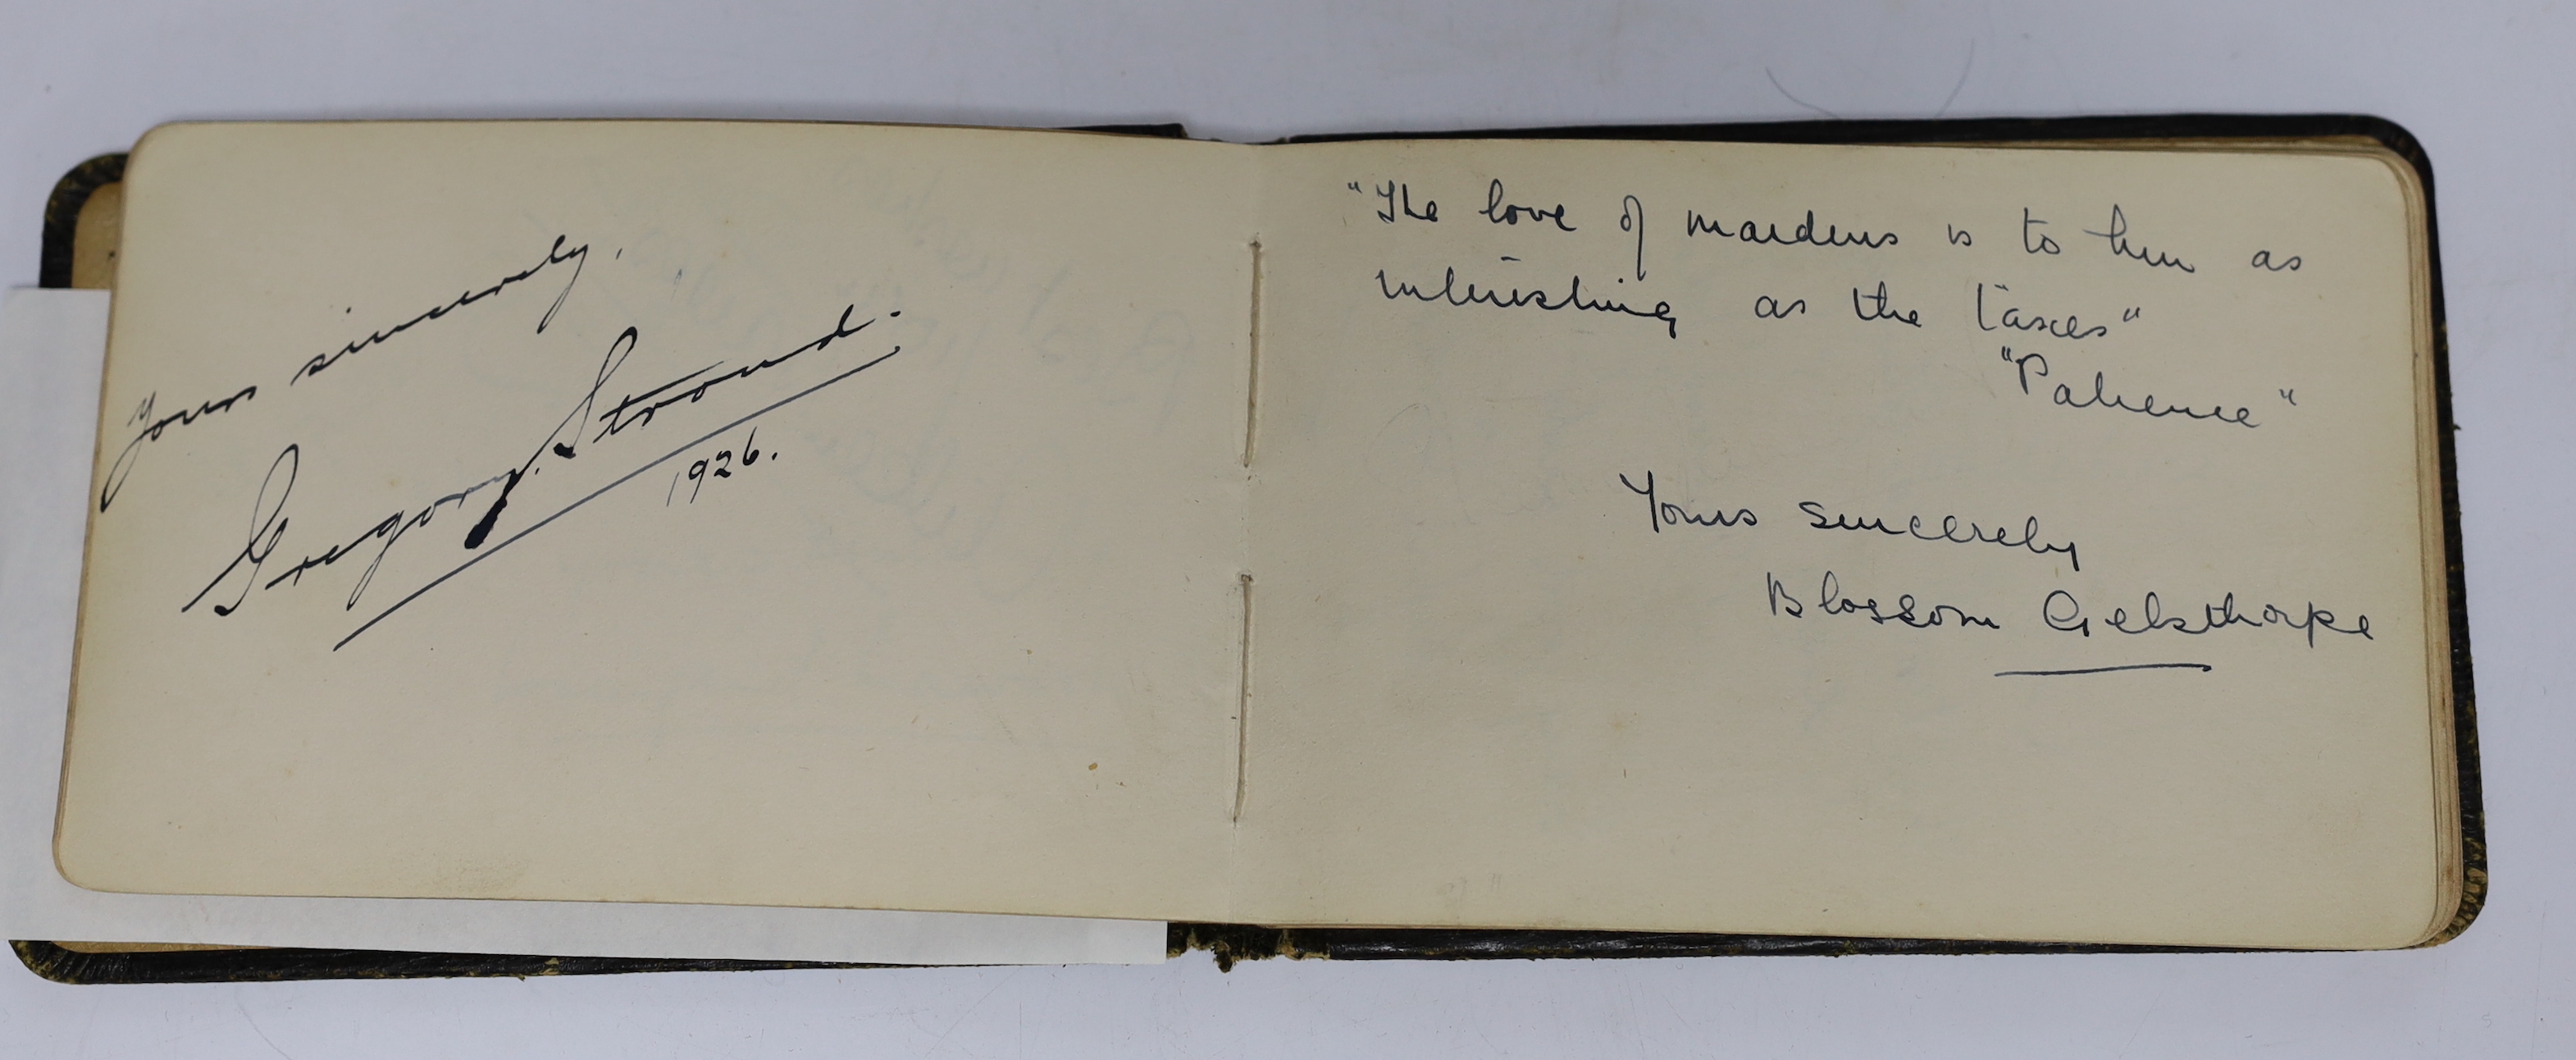 yours sincerely,
Gregory. Stroud.
1926.
"The love of maidens is to him as
interesting as the taxes"
"Patience"
Yours sincerely
Blossom Gelsthorpe